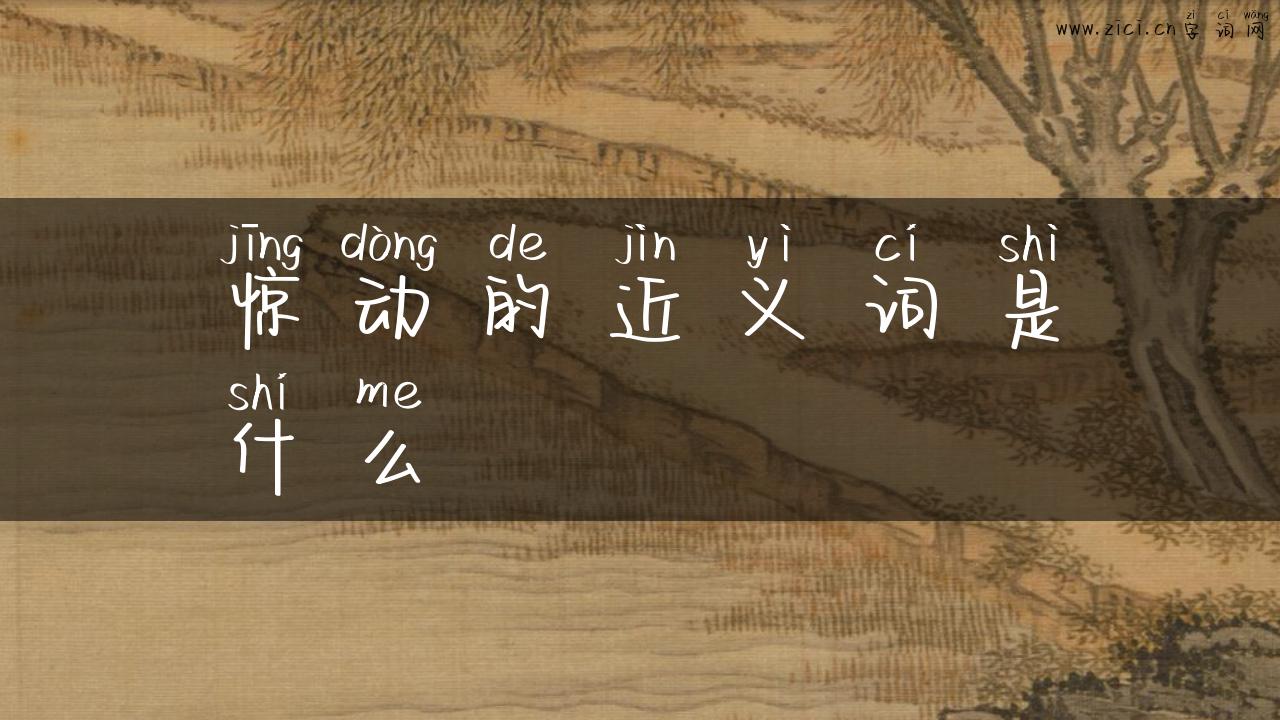 zì cí wǎng
www.zici.cn字词网
jīng dòng de jìn yì cí shì
惊动的近义词是
shí me
什么